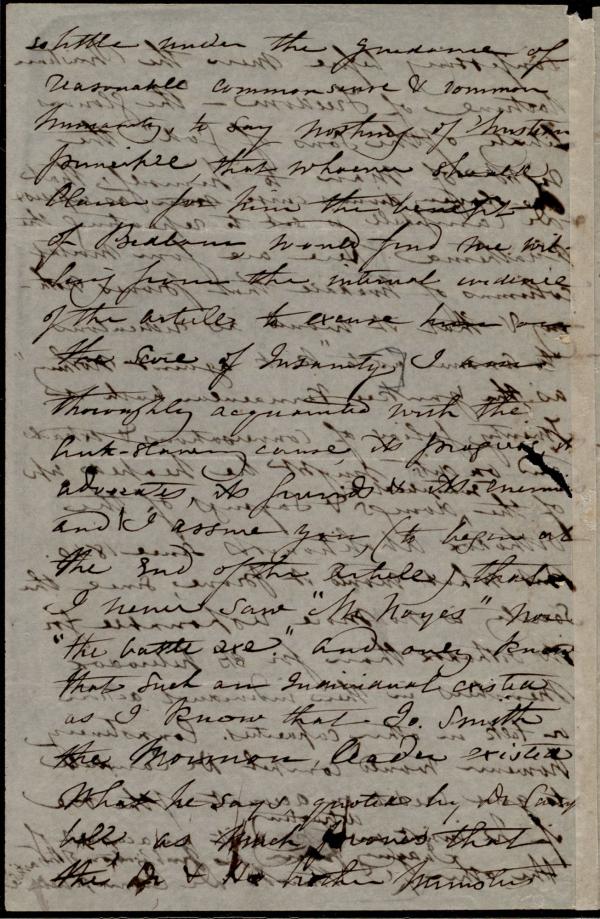 so little under the guidance of
reasonable common sense & common
humanity, to say nothing of Christian
principle, that whoever should
claim for him the benefit
of Bedlam would find me wil-
ling from the internal evidence
of the article, to excuse him on
the score of Insanity. I am
thoroughly acquainted with the
Anti-slavery cause, its progress, &
advocates, its friends & its enemies
and I assure you (to begin at
the end of the article) that
I never saw "Mr Noyes" nor
"the battle axe" and only know
that such an individual existed
as I know that Jo. Smith
the Mormon leader existed
What he says quoted by Dr
as much proves that
the Dr & his brother ministers